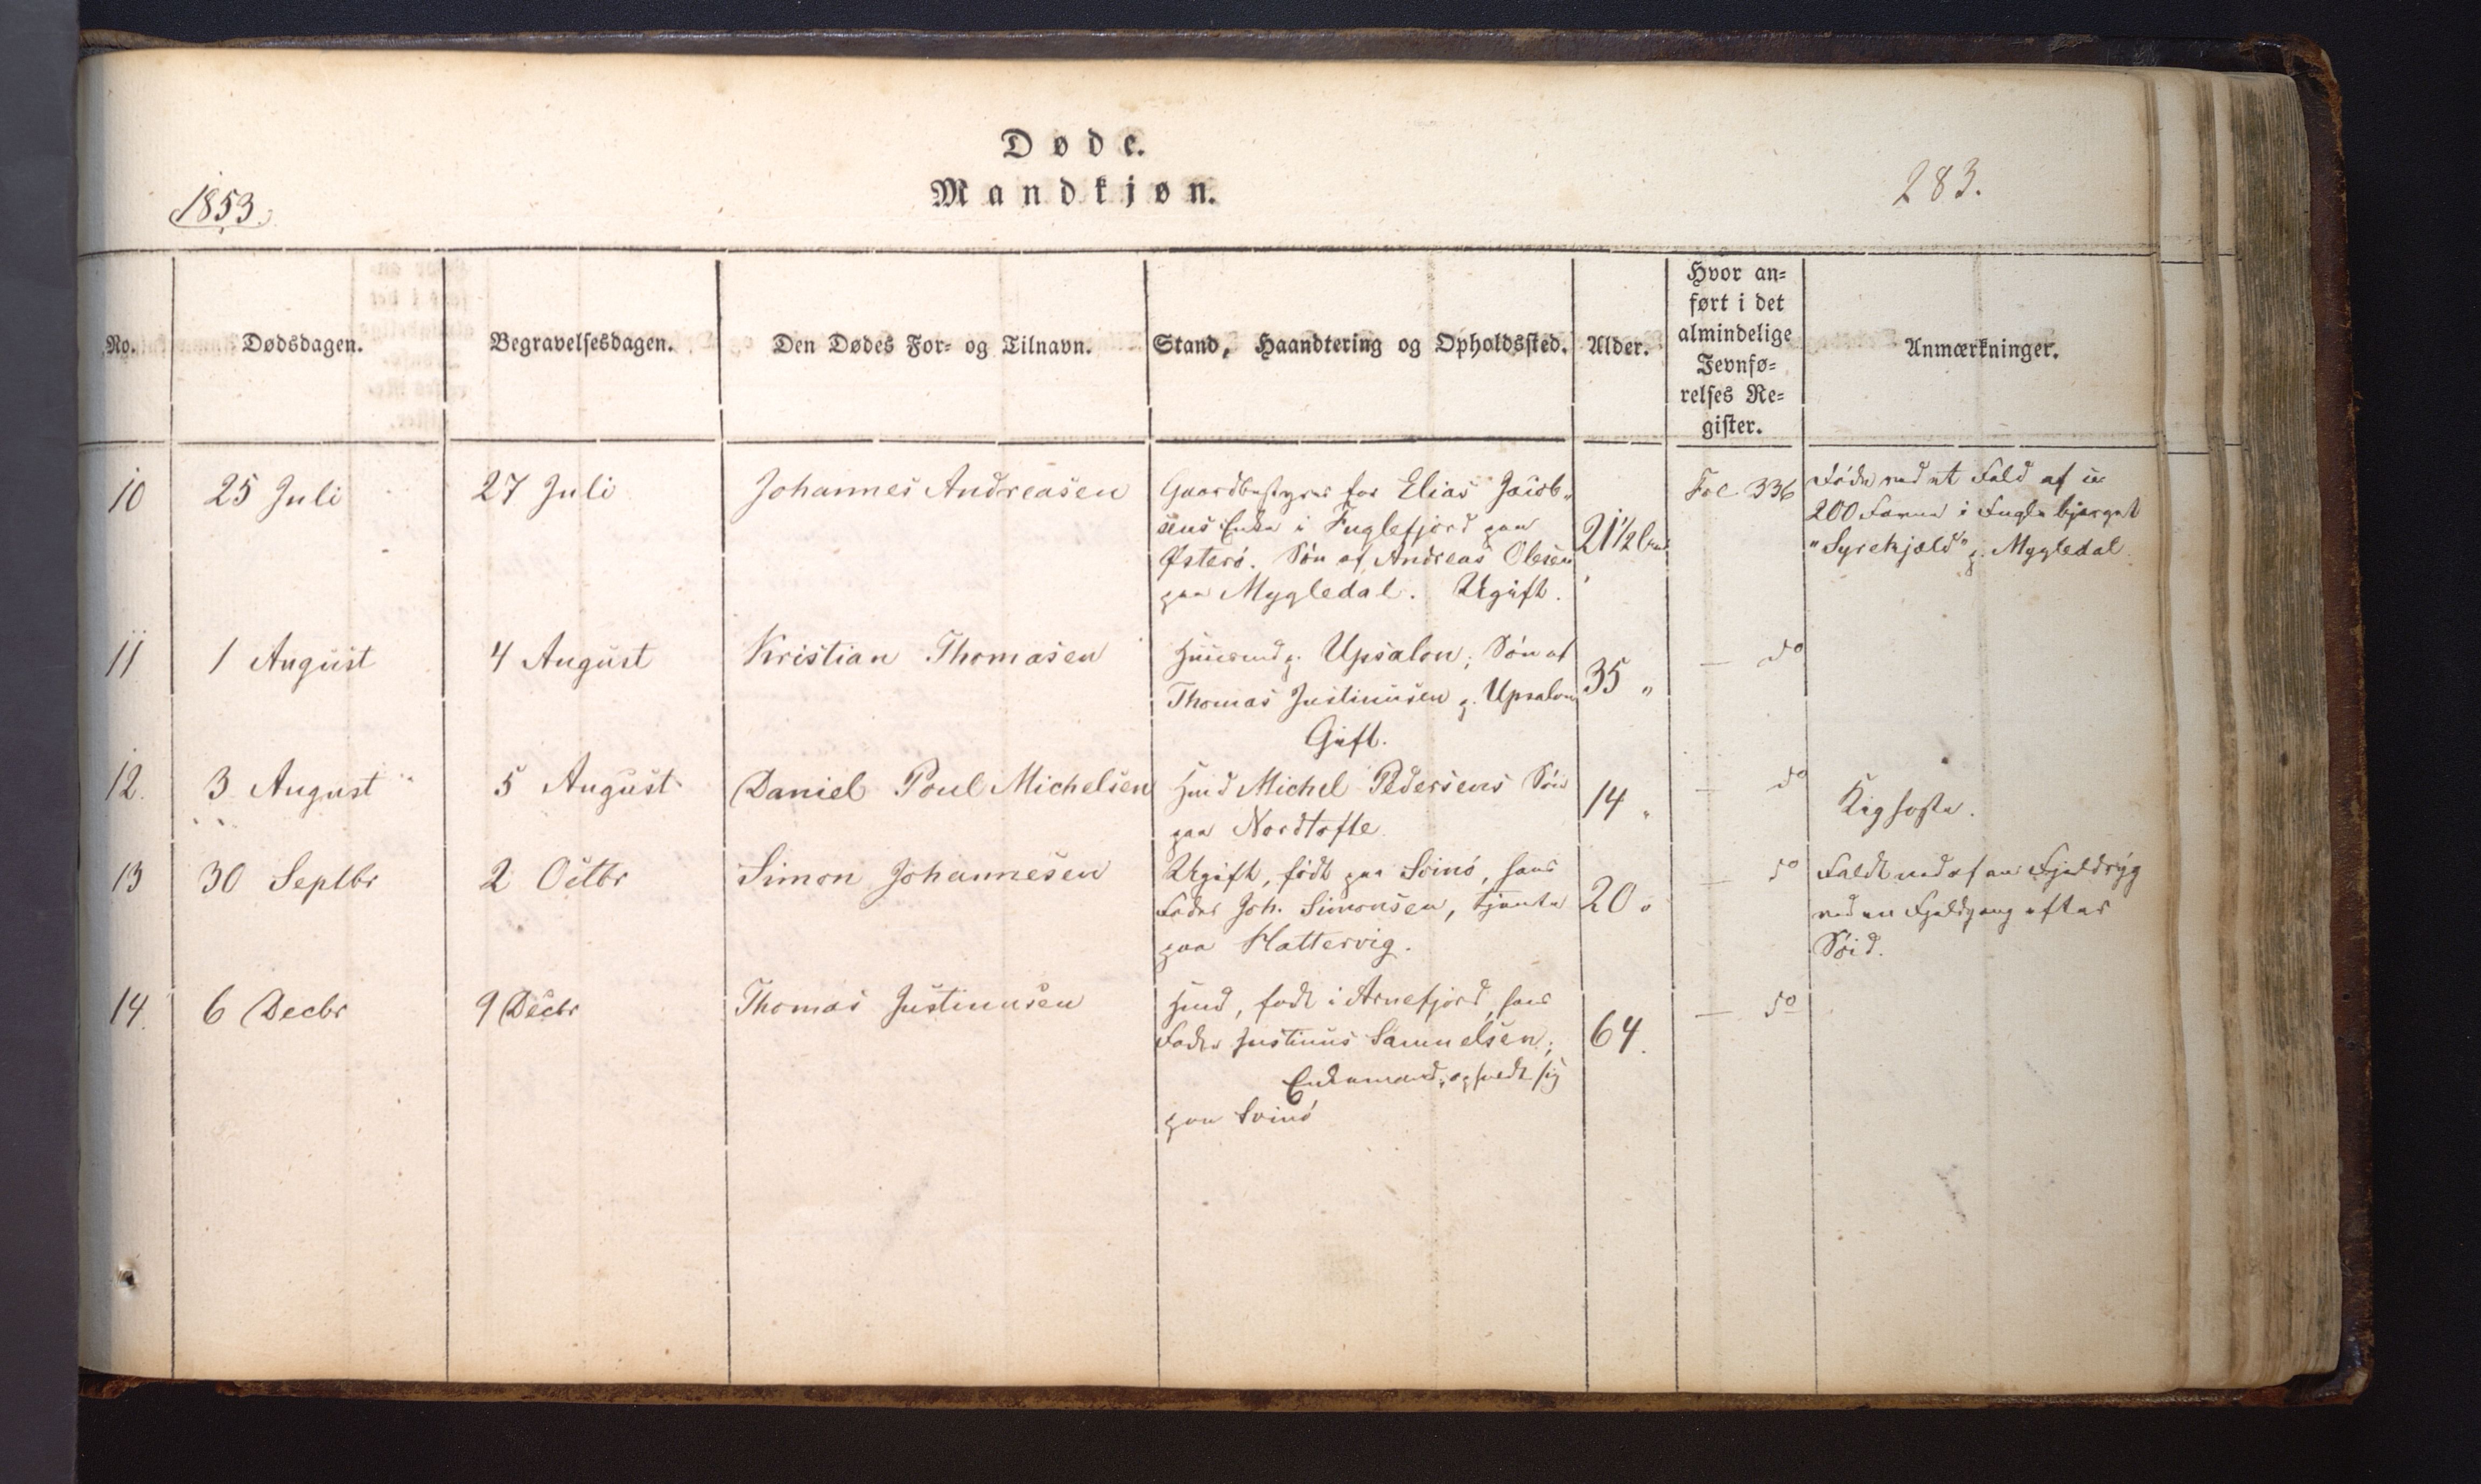 Døde.
Mandkjøn.
1853.
283.
No.
Dødsdagen.
Begravelsesdagen.
Den Dødes For- og Tilnavn.
Stand, Haandtering og Opholdssted.
Alder.
Hvor an-
ført i det
almindelige
Jevnfø-
relses Re-
gister.
Anmærkninger.
10
25 Juli
27 Juli
Johannes Andreasen
Gaardbestyrer for Elias Jacob-
sens Enke i Fuglefjord paa
Østerø. Søn af Andreas Olesen
paa Mygledal. Ugift.
21 1/2
Fol. 336
Døde ved et Fald af
200 Favne i Fuglebjerget
"Syrekjæld" p. Mygledal
11
1 August
4 August
Kristian Thomasen
Huusmd p. Upsalon; Søn af
Thomas Justinusen p. Upsalon
Gift.
35 "
— do
12.
3 August
5 August
Daniel Poul Michelsen
Hmd Michel Pedersens Søn
paa Nordtofte
14 "
— do
Kighoste.
13
30 Septbr
2 Octbr
Simon Johannesen
Ugift, født paa Svinø, hans
Fader Joh. Simonsen, tjente
paa Hattervig.
20 "
— do
Faldt ned af en Fjeldryg
ved en Fjeldgang efter
14.
6 Decbr
9 Decbr
Thomas Justinusen
Hmd, født i Arnefjord, hans
Fader Justinus Samuelsen;
Enkemand, opholdt sig
paa Svinø
64.
— do